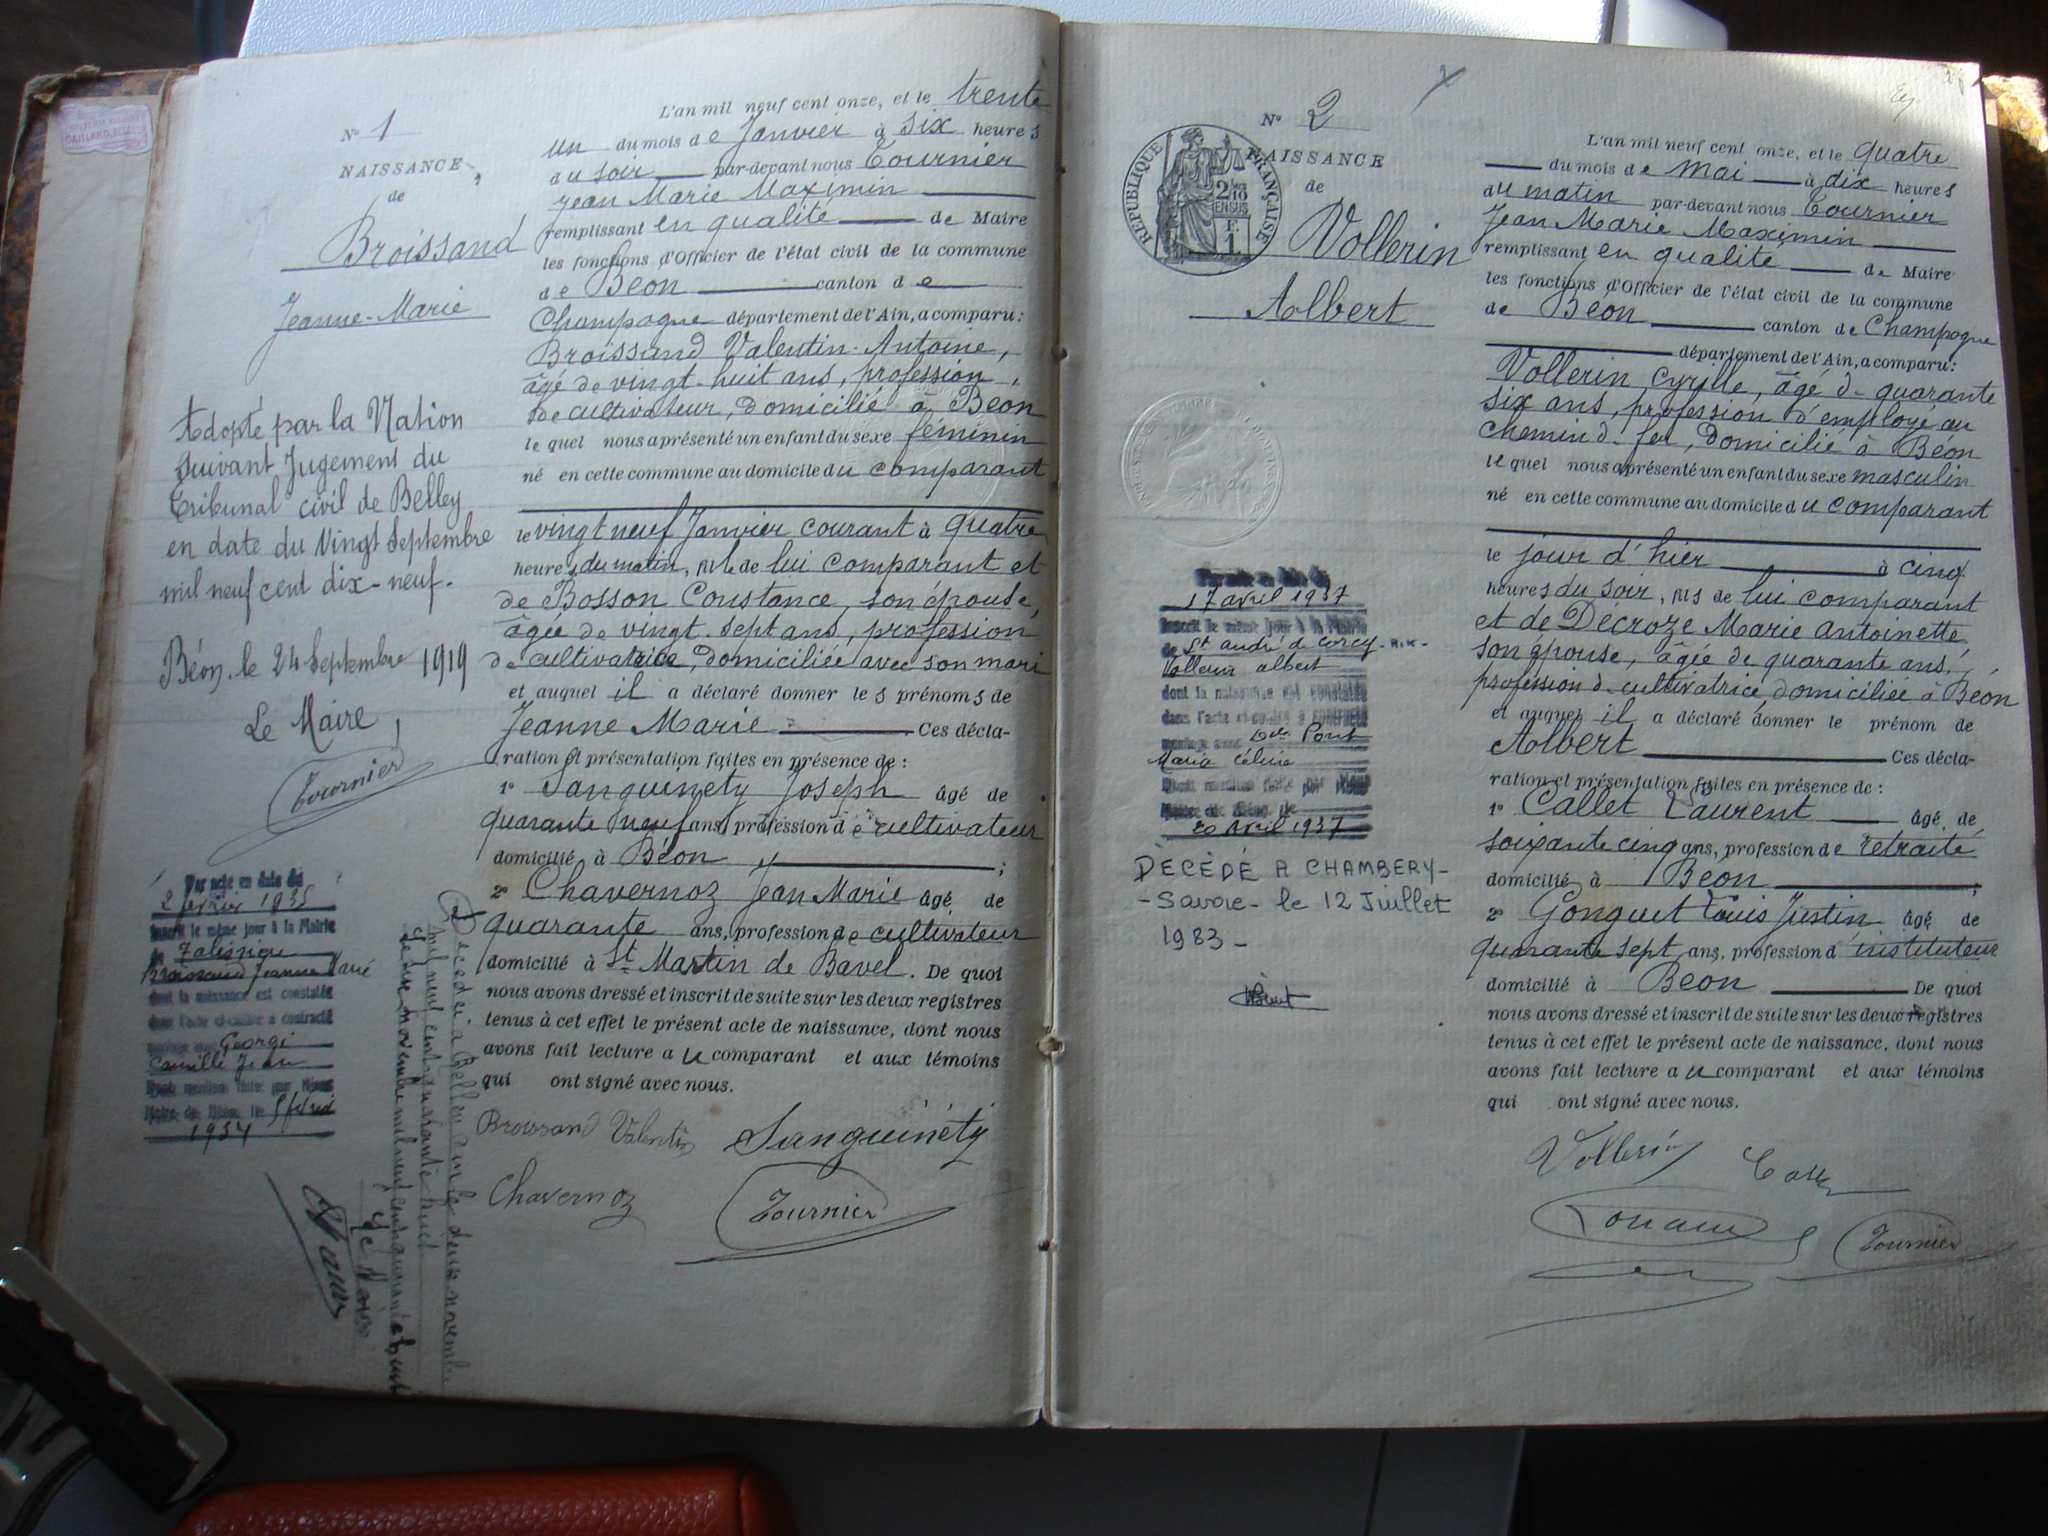 N° 1
NAISSANCE
de
Broissand
Jeanne-Marie
Adopté par la Nation
suivant Jugement du
Tribunal civil de Belley
en date du Vingt Septembre
mil neuf cent dix-neuf.
Béon, le 24 Septembre 1919
Le Maire,
Tournier
Par acte en date du
2 février 1935
Inscrit le même jour à la Mairie
de Talissieu
Broissand Jeanne Marie
dont la naissance est constatée
dans l'acte ci-contre a contracté
mariage avec George
Camille Jean
Dont mention faite par Nous
Maire de Béon, le 5 février
Décédée à Belley Ain le deux novembre
mil neuf cent quarante huit
Le Maire
L'an mil neuf cent onze, et le trente
un du mois de Janvier à six heures
du soir par-devant nous Tournier
Jean Marie Maximin
remplissant en qualité de Maire
les fonctions d'Officier de l'état civil de la commune
de Béon canton de
Champagne département de l'Ain, a comparu :
Broissand Valentin-Antoine,
âgé de vingt-huit ans, profession
de cultivateur, domicilié à Béon
lequel nous a présenté un enfant du sexe féminin
né en cette commune au domicile du comparant
le vingt neuf Janvier courant à quatre
heures du matin, fille de lui comparant et
de Bosson Constance, son épouse,
âgée de vingt-sept ans, profession
de cultivatrice, domiciliée avec son mari
et auquel il a déclaré donner les prénoms de
Jeanne Marie Ces décla-
ration et présentation faites en présence de :
1° Sanguinéty Joseph âgé de
quarante neuf ans, profession de cultivateur
domicilié à Béon ;
2° Chavernoz Jean Marie âgé de
quarante ans, profession de cultivateur
domicilié à St Martin de Bavel. De quoi
nous avons dressé et inscrit de suite sur les deux registres
tenus à cet effet le présent acte de naissance, dont nous
avons fait lecture au comparant et aux témoins
qui ont signé avec nous.
Broissand Valentin Sanguinéty
Chavernoz Tournier
N° 2
NAISSANCE
de
RÉPUBLIQUE FRANÇAISE
Vollerin
Albert
Par acte en date du
17 avril 1937
Inscrit le même jour à la Mairie
de St andré de Corcy - Ain -
Vollerin albert
dont la naissance est constatée
dans l'acte ci-contre a contracté
mariage avec Delle Pont
Maria Céline
Dont mention faite par Nous
Maire de Béon, le
20 Avril 1937
DÉCÉDÉ A CHAMBERY-
-Savoie- le 12 Juillet
1983-
L'an mil neuf cent onze, et le quatre
du mois de mai à dix heures
du matin par-devant nous Tournier
Jean Marie Maximin
remplissant en qualité de Maire
les fonctions d'Officier de l'état civil de la commune
de Béon canton de Champagne
département de l'Ain, a comparu :
Vollerin Cyrille, âgé de quarante
six ans, profession d'employé au
chemin de fer, domicilié à Béon
lequel nous a présenté un enfant du sexe masculin
né en cette commune au domicile du comparant
le jour d'hier à cinq
heures du soir, fils de lui comparant
et de Décroze Marie Antoinette
son épouse, âgée de quarante ans,
profession de cultivatrice, domiciliée à Béon
et auquel il a déclaré donner le prénom de
Albert Ces décla-
ration et présentation faites en présence de :
1° Callet Laurent âgé de
soixante cinq ans, profession de retraité
domicilié à Béon ;
2° Gonguet Louis Justin âgé de
quarante sept ans, profession d'instituteur
domicilié à Béon De quoi
nous avons dressé et inscrit de suite sur les deux registres
tenus à cet effet le présent acte de naissance, dont nous
avons fait lecture au comparant et aux témoins
qui ont signé avec nous.
Vollerin
Tournier